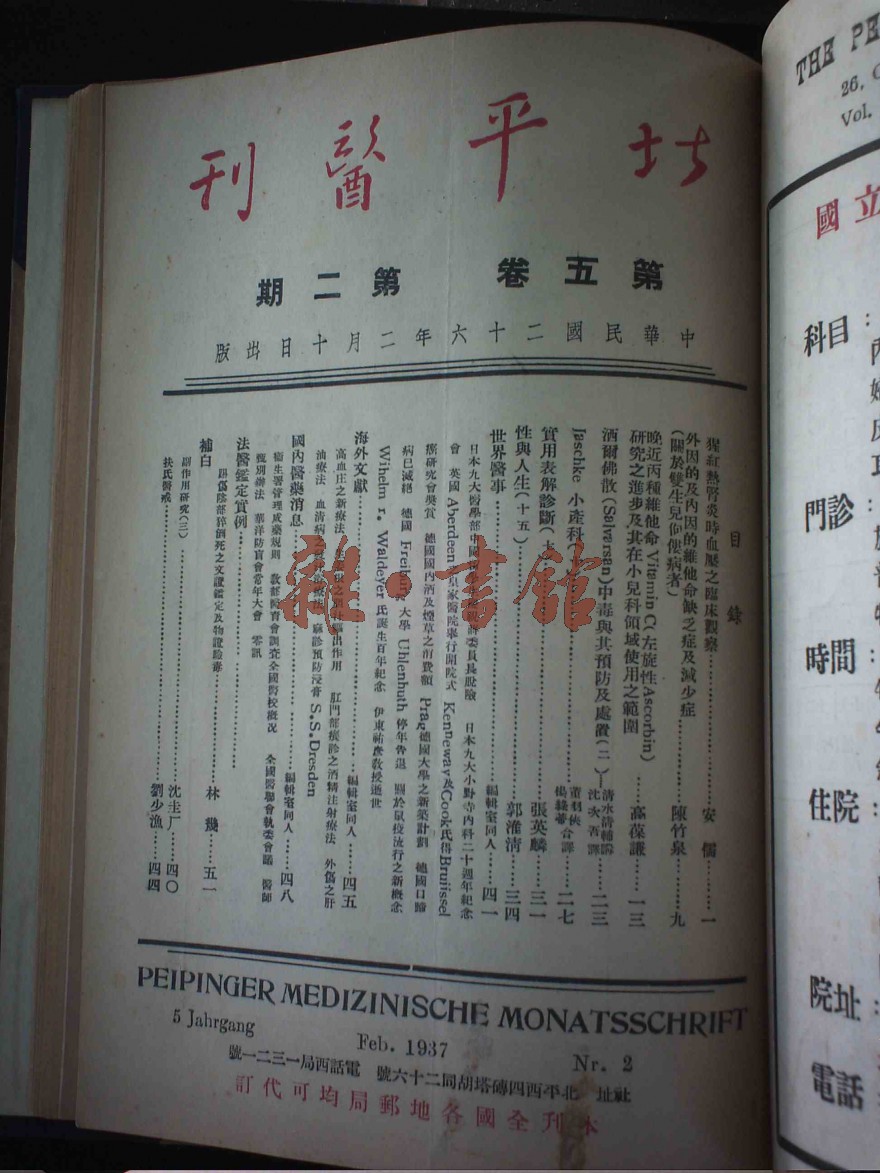 北平醫刊
第五卷 第二期
中華民國二十六年二月十日出版
目錄
猩紅熱腎炎時血壓之臨床觀察……安儒……一
外因的及內因的維他命缺乏症及減少症
(關於雙生兒佝僂病者)……陳竹泉……九
晚近丙種維他命Vitamin C(左旋性Ascorbin)
研究之進步及其在小兒科領域使用之範圍……高葆謙……一三
酒爾佛散(Salvarsan)中毒與其預防及處置(二)……沈次吾譯……二三
Jaschke 小產科……合譯……二七
實用表解診斷……張英麟……三一
性與人生(十五)……郭濰清……三四
世界醫事……編輯室同人……四一
日本九大醫學部中國……委員長脫險 日本九大小野寺內科二十週年紀念
會 英國 Aberdeen 皇家醫院舉行開院式 Cook氏得Bruijssel
癌研究會獎賞 德國國內酒及煙草之消費額 Prag德國大學之新築計劃 德國口蹄
病已滅絕 德國 Freiburg 大學 Uhlenhuth 停年告退 關於鼠疫流行之新概念
Wihelm r. Waldeyer 氏誕生百年紀念 伊東祐彥教授逝世
海外文獻……編輯室同人……四五
高血庄之新療法 出作用 肛門部瘙診之酒精注射療法 外傷之肝
油療法 血清病 療法 麻診預防浸膏 S.S.Dresden
國內醫藥消息……編輯室同人……四八
衛生署管理成藥規則 教部醫育會調查全國醫校概況 全國醫聯會執委會議 醫師
甄別辦法 華洋防盲會常年大會 零訊
法醫鑑定實例……林幾……五一
踢傷陰部猝倒死之文證鑑定及物證驗毒
補白
副作用研究(三)……沈圭厂……四〇
扶氏醫戒……劉少漁……四四
PEIPINGER MEDIZINISCHE MONATSSCHRIFT
5 Jahrgang Feb. 1937 Nr. 2
社址 北平西四磚塔胡同二十六號 電話西局一三二一號
本刊全國各地郵局均可代訂
雜·書館
THE PE
26,
Vol.
國立
科目：
門診：
時間：
住院：
院址：
電話